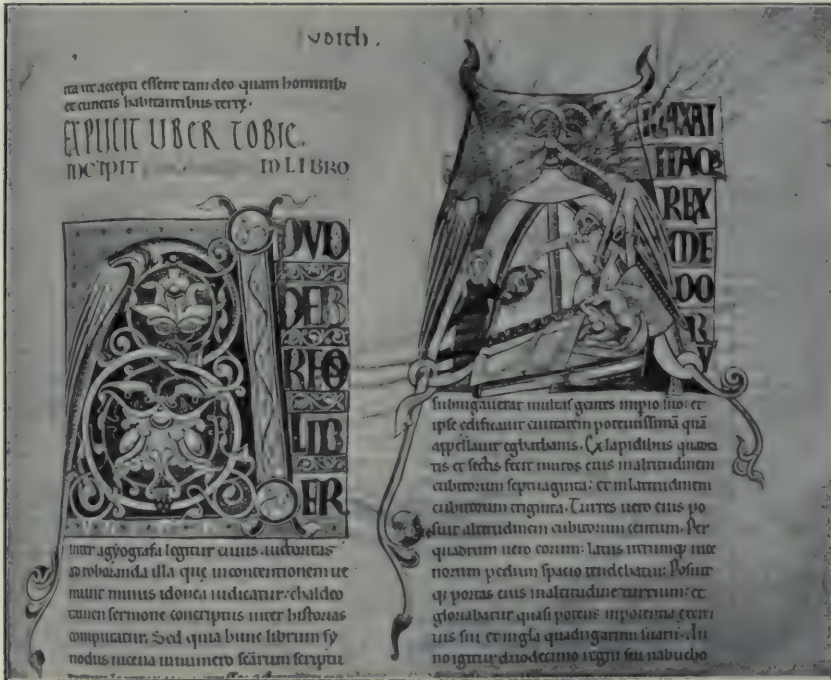 Judith.
ita ut accepti essent tam deo quam hominib;
et cunctis habitantibus terrę.
EXPLICIT LIBER TOBIE.
INCIPIT IN LIBRO
APVD
HEB
REOS
LIB
ER
inter agyografa legitur cuius auctoritas
ad roboranda illa quę in contentionem ue
niunt minus idonea iudicatur. chaldeo
tamen sermone conscriptus inter historias
computatur. Sed quia hunc librum sy
nodus nicena in numero scārum scriptu
ARFAXAT
ITAQ;
REX
ME
DO
R
V
subiugauerat multas gentes imperio suo: et
ipse edificauit ciuitatem potentissimā quā
appellauit egbathanis. Ex lapidibus quadra
tis et sectis fecit muros eius in altitudinem
cubitorum septuaginta: et in latitudinem
cubitorum triginta. Turres uero eius po
suit altitudinem cubitorum centum. Per
quadrum uero eorum: latus utrumq; uice
norum pedum spacio tendebatur: Posuit
q; portas eius in altitudine turrium: et
gloriabatur quasi potens in potentia exerci
tus sui et in glā quadrigarum suarū. An
no igitur duodecimo regni sui nabucho